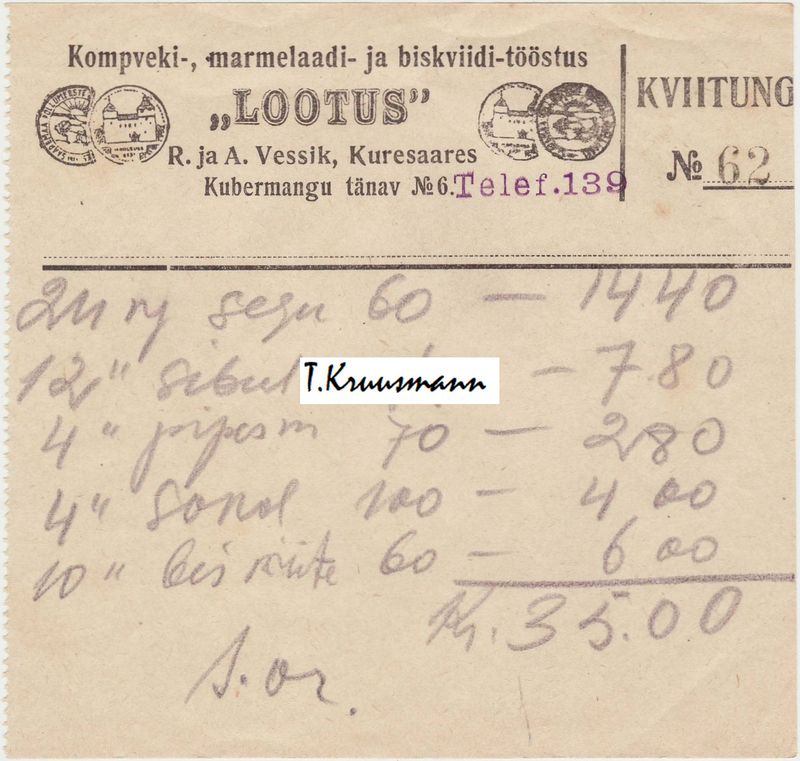 Kompveki-, marmelaadi- ja biskviidi-tööstus
„LOOTUS”
R. ja A. Vessik, Kuresaares
Kubermangu tänav №6. Telef.139
KVIITUNG
№ 62
24 segu 60 — 14 40
12 " sibul — 7 80
4 " 70 — 2 80
4 " 100 — 4 00
10 " biskviite 60 — 6 00
Kr. 35.00
T.Kruusmann